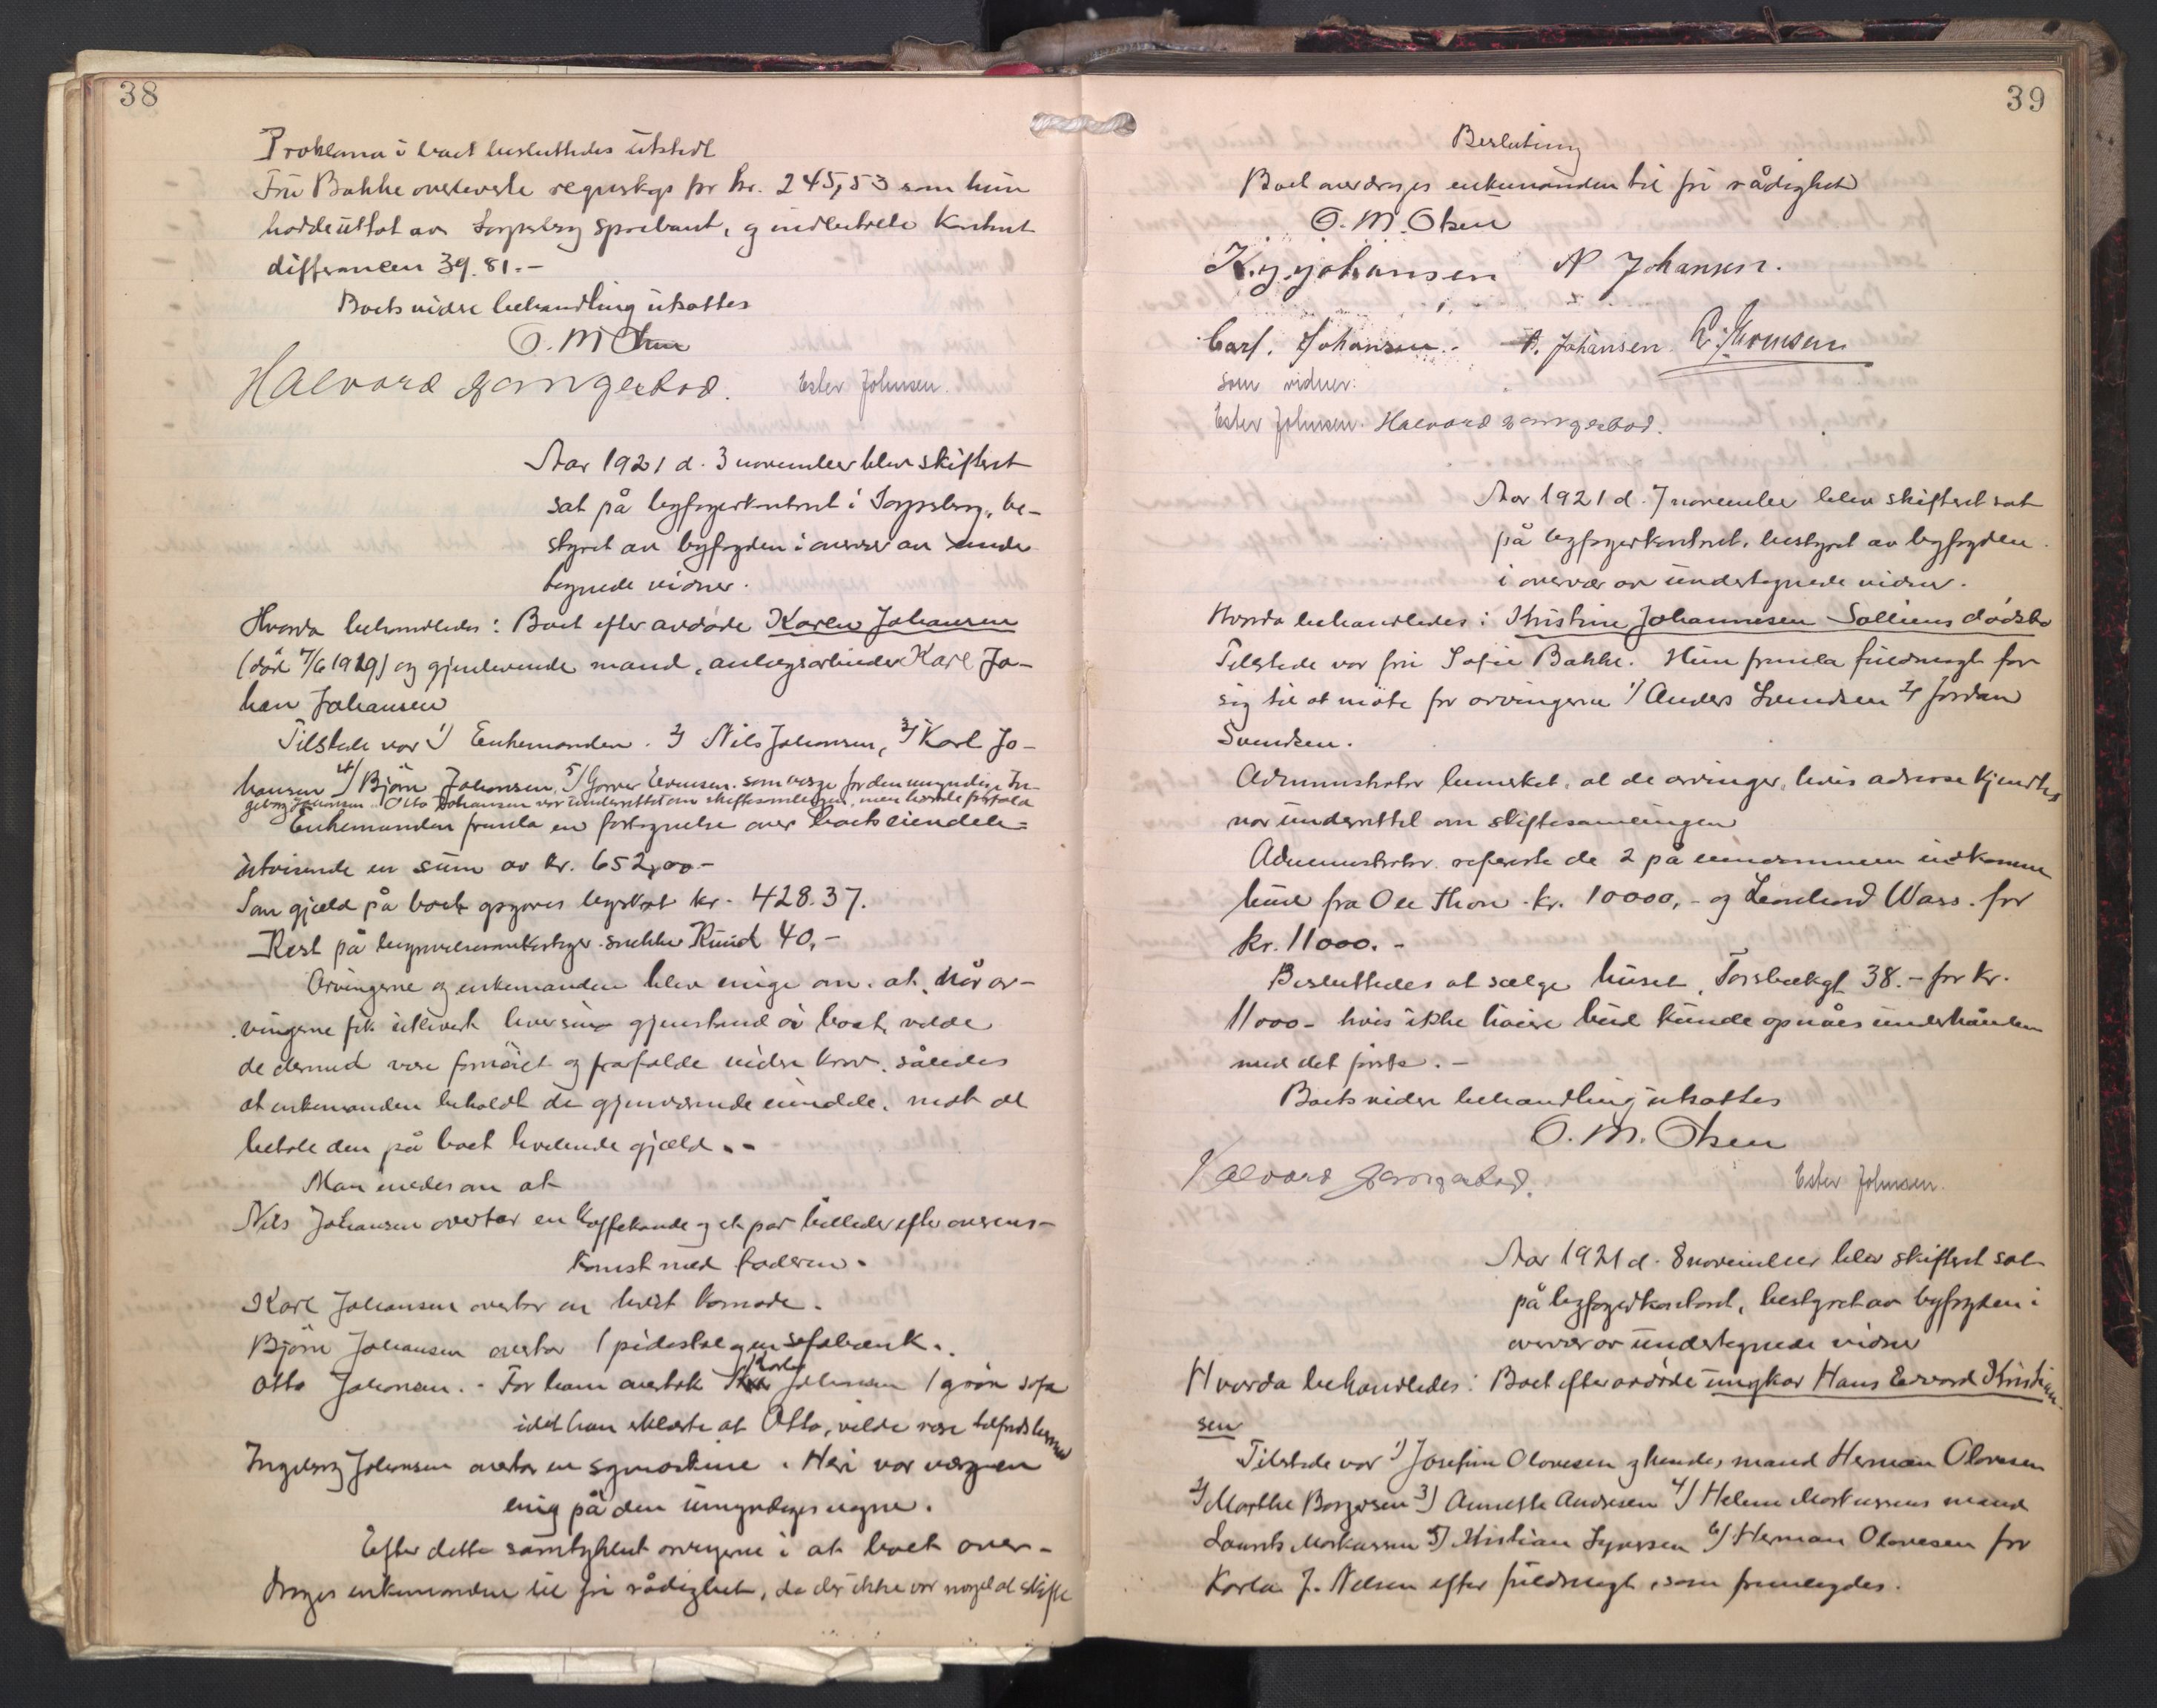 38
Proklama i boet besluttedes utstedt
Fru Bakke overleverte regnskap for kr. 245,53 som hun
hadde uttat av Sarpsborg Sparebank, og indbetalte kontant
differancen 39.81.-
Boets videre behandling utsattes
O. M. Olsen
Halvard Ester Johnsen.
Aar 1921 d. 3 november blev skifteret
sat på byfogedkontoret i Sarpsborg, be-
styret av byfogden i overvær av under
tegnede vidner.
Hvorda behandledes: Boet efter avdøde Karen Johansen
(død 7/6 1919) og gjenlevende mand, anlægsarbeider Karl Jo-
han Johansen
Tilstede var 1) Enkemanden. 2) Nils Johansen, 3) Karl Jo-
hansen 4) Björn Johansen, 5) Evensen. som verge for den umyndige In-
geborg Johansen. Otto Johansen var underrettet om skiftesamlingen, men hadde forfald
Enkemanden fremla en fortegnelse over boets eiendele
utvisende en sum av kr. 652,00-
Som gjæld på boet opgaves byskat kr. 428.37.
Rest på begravelsesomkostninger snekker Ruud 40,-
Arvingerne og enkemanden blev enige om, at, når ar-
vingerne fik utlevert hver sin gjenstand i boet, vilde
de dermed være fornöiet og frafalde videre krav, således
at enkemanden beholdt de gjenværende eiendele, mot at
betale den på boet hvilende gjæld.-
Man enedes om at
Nils Johansen overtar en kaffekande og et par billeder efter overens-
komst med faderen.
Karl Johansen overtar en hvit komode.
Björn Johansen overtar 1 pidestal og en sofabænk.
Otto Johansen. - For ham overtok Karl Johansen 1 grön sofa
idet han erklærte at Otto, vilde være tilfreds hermed
Ingeborg Johansen overtar en symaskine. Heri var vergen
enig på den umyndiges vegne.
Efter dette samtykket arvingerne i at boet over-
drages enkemanden til fri rådighet, da der ikke var noget at skifte
39
Beslutning
Boet overdrages enkemanden til fri rådighet
O. M. Olsen
K. J. Johansen N Johansen.
Carl. Johansen.- B. Johansen.
som vidner:
Ester Johnsen. Halvard
Aar 1921 d. 7 november blev skifteret sat
på byfogedkontoret, bestyret av byfogden
i overvær av undertegnede vidner.
Hvorda behandledes: Kristine Johannesen Solliens dødsbo
Tilstede var fru Sofie Bakke. Hun fremla fuldmagt for
sig til at møte for arvingerne 1) Anders Svendsen 2) Jordan
Svendsen.
Administrator bemerket, at de arvinger, hvis adresse kjendtes
var underrettet om skiftesamlingen
Administrator refererte de 2 på eiendommen indkomne
bud fra Ole Thon kr. 10000,- og Leonhard Wass. for
kr. 11000.-
Besluttedes at sælge huset, Torsbækgt 38.- for kr.
11000- hvis ikke høiere bud kunde opnåes underhånden
med det første.-
Boets videre behandling utsattes
O. M. Olsen
Halvard Ester Johnsen.
Aar 1921 d. 8 november blev skifteret sat
på byfogedkontoret, bestyret av byfogden i
overvær av undertegnede vidner
Hvorda behandledes: Boet efter avdøde ungkar Hans Edvard Kristian-
sen
Tilstede var 1) Josefine Olavesen og hendes mand Herman Olavesen
2) Marthe Borgersen 3) Annette Andresen 4) Helene Markussens mand
Laurits Markussen 5) Kristian Syversen 6) Herman Olavesen for
Karla J. Nilsen efter fuldmagt, som fremlagdes.